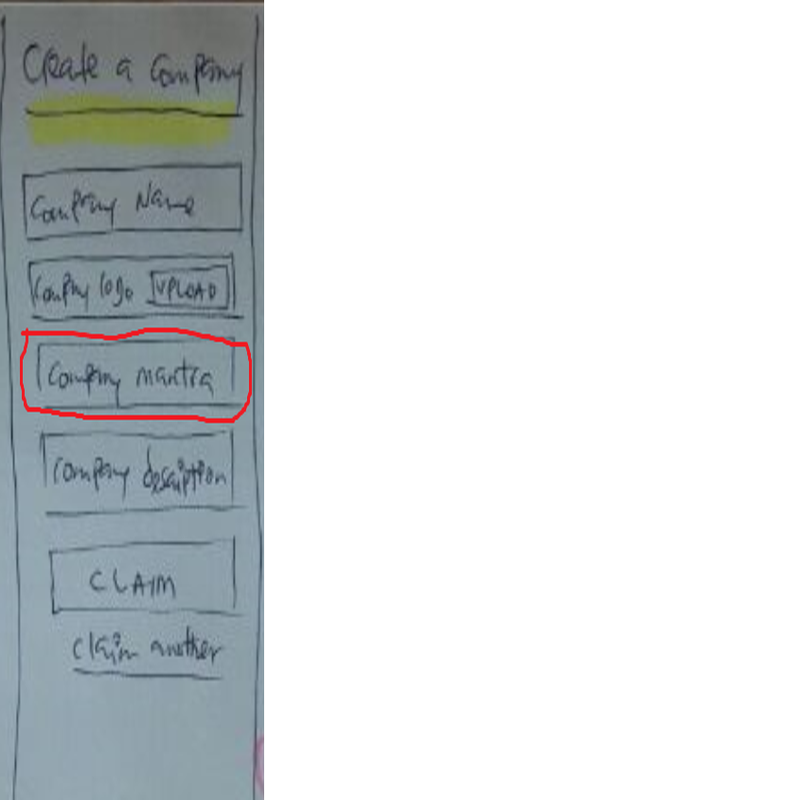 Create a Company
Company Name
Company logo UPLOAD
Company mantra
Company description
CLAIM
Claim another